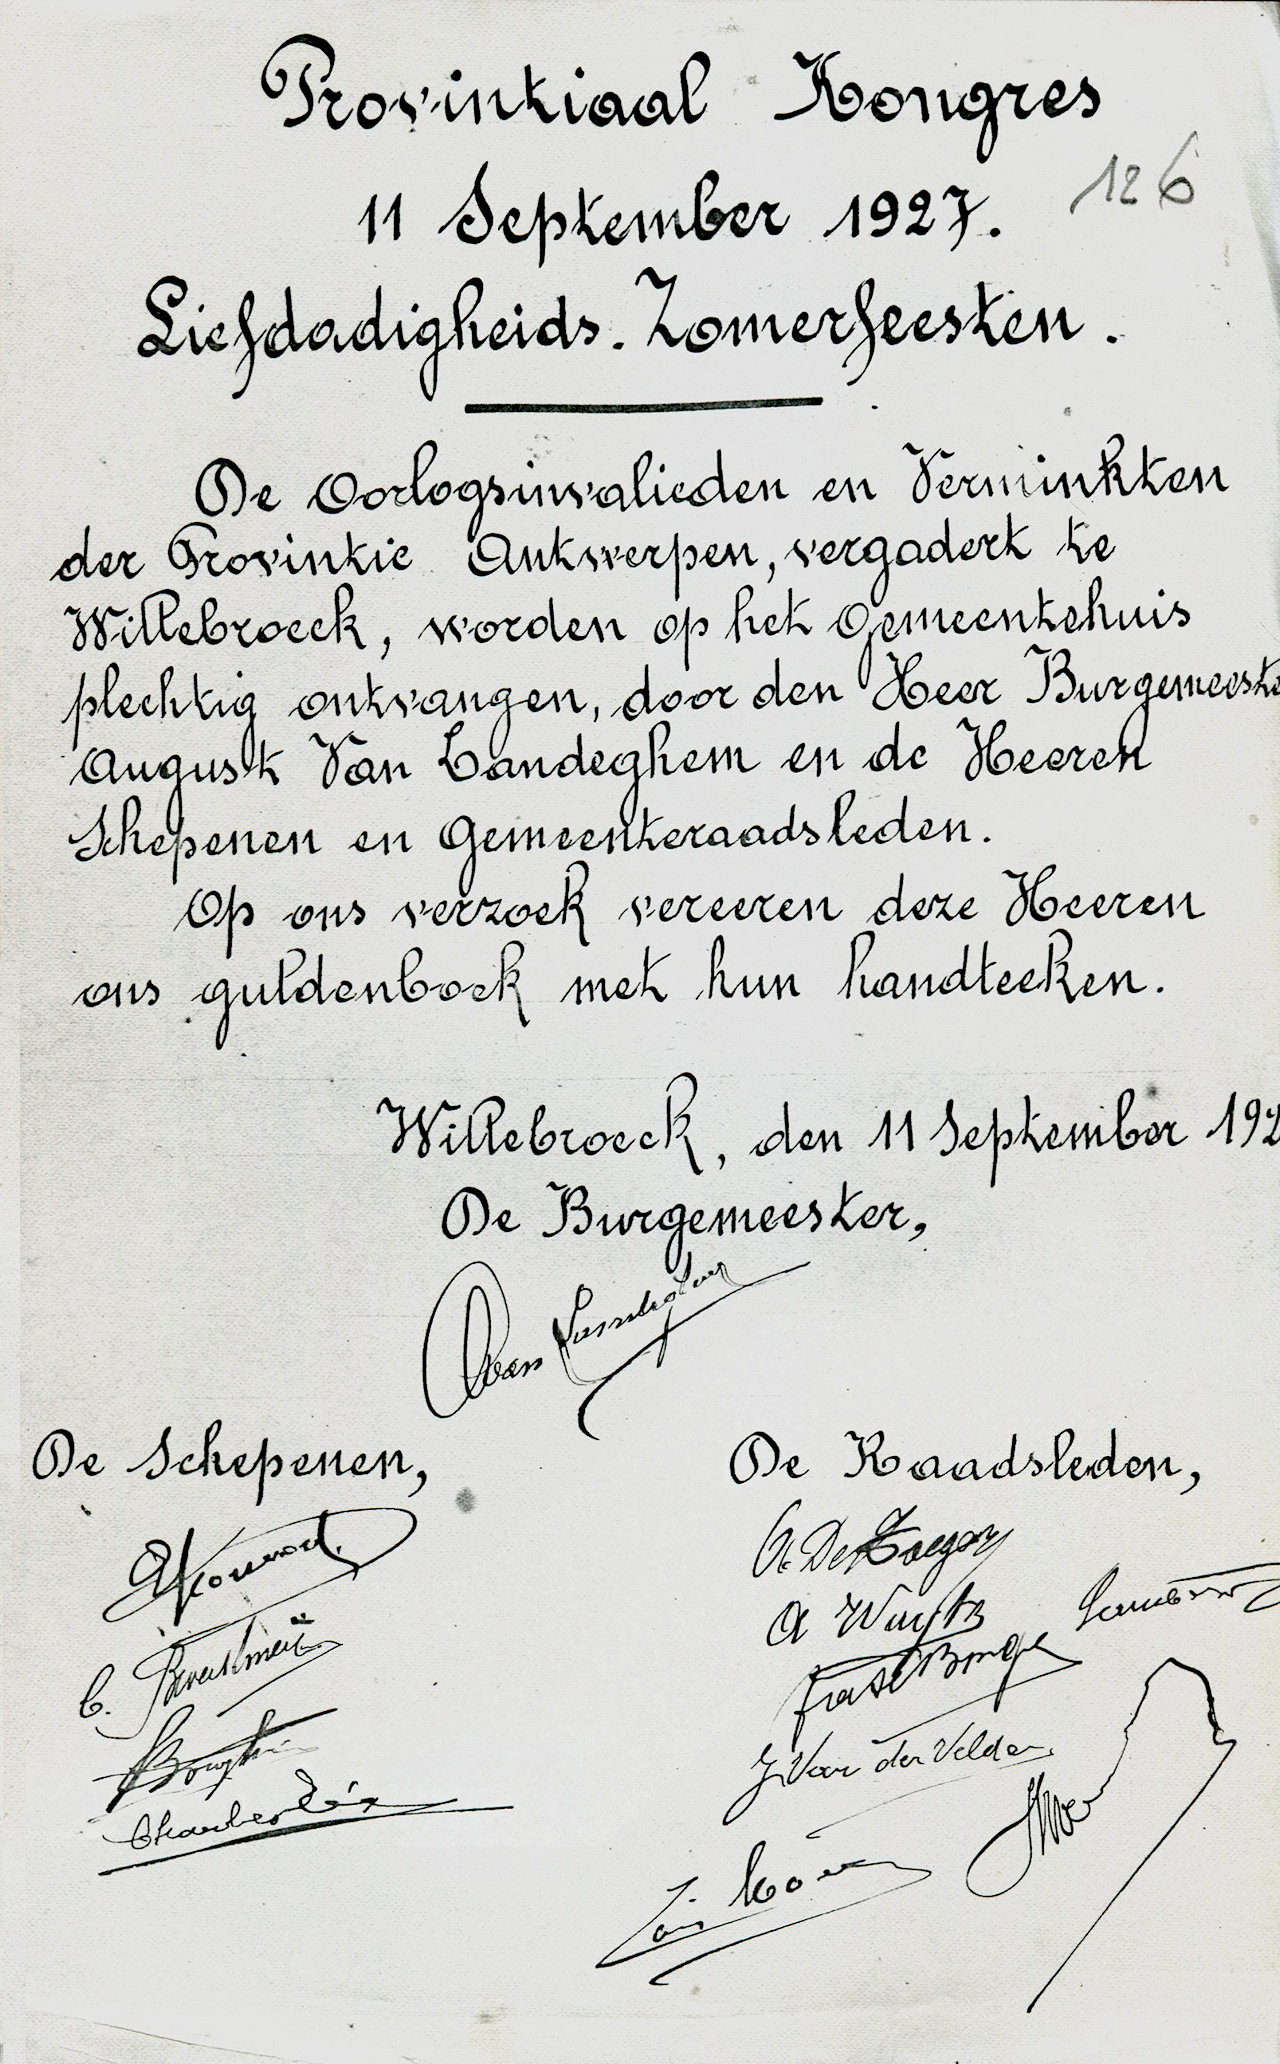 Provinkiaal Kongres
126
11 September 1927.
Liefdadigheids. Zomerfeesten.
De Oorlogsinvalieden en Verminkten
der Provintie Antwerpen, vergadert te
Willebroeck, worden op het Gemeentehuis
plechtig ontvangen, door den Heer Burgemeeste
August Van Landeghem en de Heeren
Schepenen en Gemeenteraadsleden.
Op ons verzoek vereeren deze Heeren
ons guldenboek met hun handteeken.
Willebroeck, den 11 September 192
De Burgemeester,
Van Landeghem
De Schepenen,
De Raadsleden,
A Wuyts
J Van der Velden